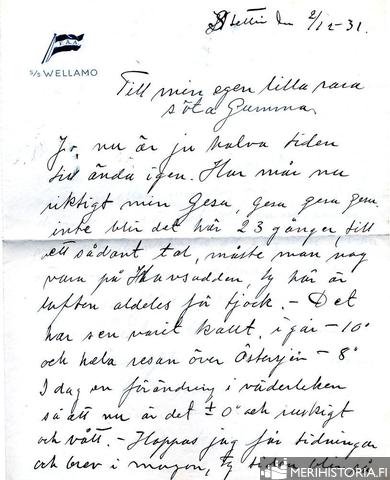 Stettin den 2/12-31.
F.Å.A.
S/S WELLAMO
Till min egen lilla rara
söta Gumma,
Jo, nu är ju halva tiden
till ända igen. Hur mår nu
riktigt min Gesa, gesa gesa
inte blir det här 23 gånger, till
ett sådant tal, måste man nog
vara på Havsudden, ty här är
luften aldeles för tjock. - Det
har sen varit kallt, i går - 10°
och hela resan över Östersjön - 8°
I dag en förändring i väderleken
så att nu är det ± 0° och ruskigt
och vått. - Hoppas jag får tidningar
och brev i morgon, ty tiden blir så
MERIHISTORIA.FI